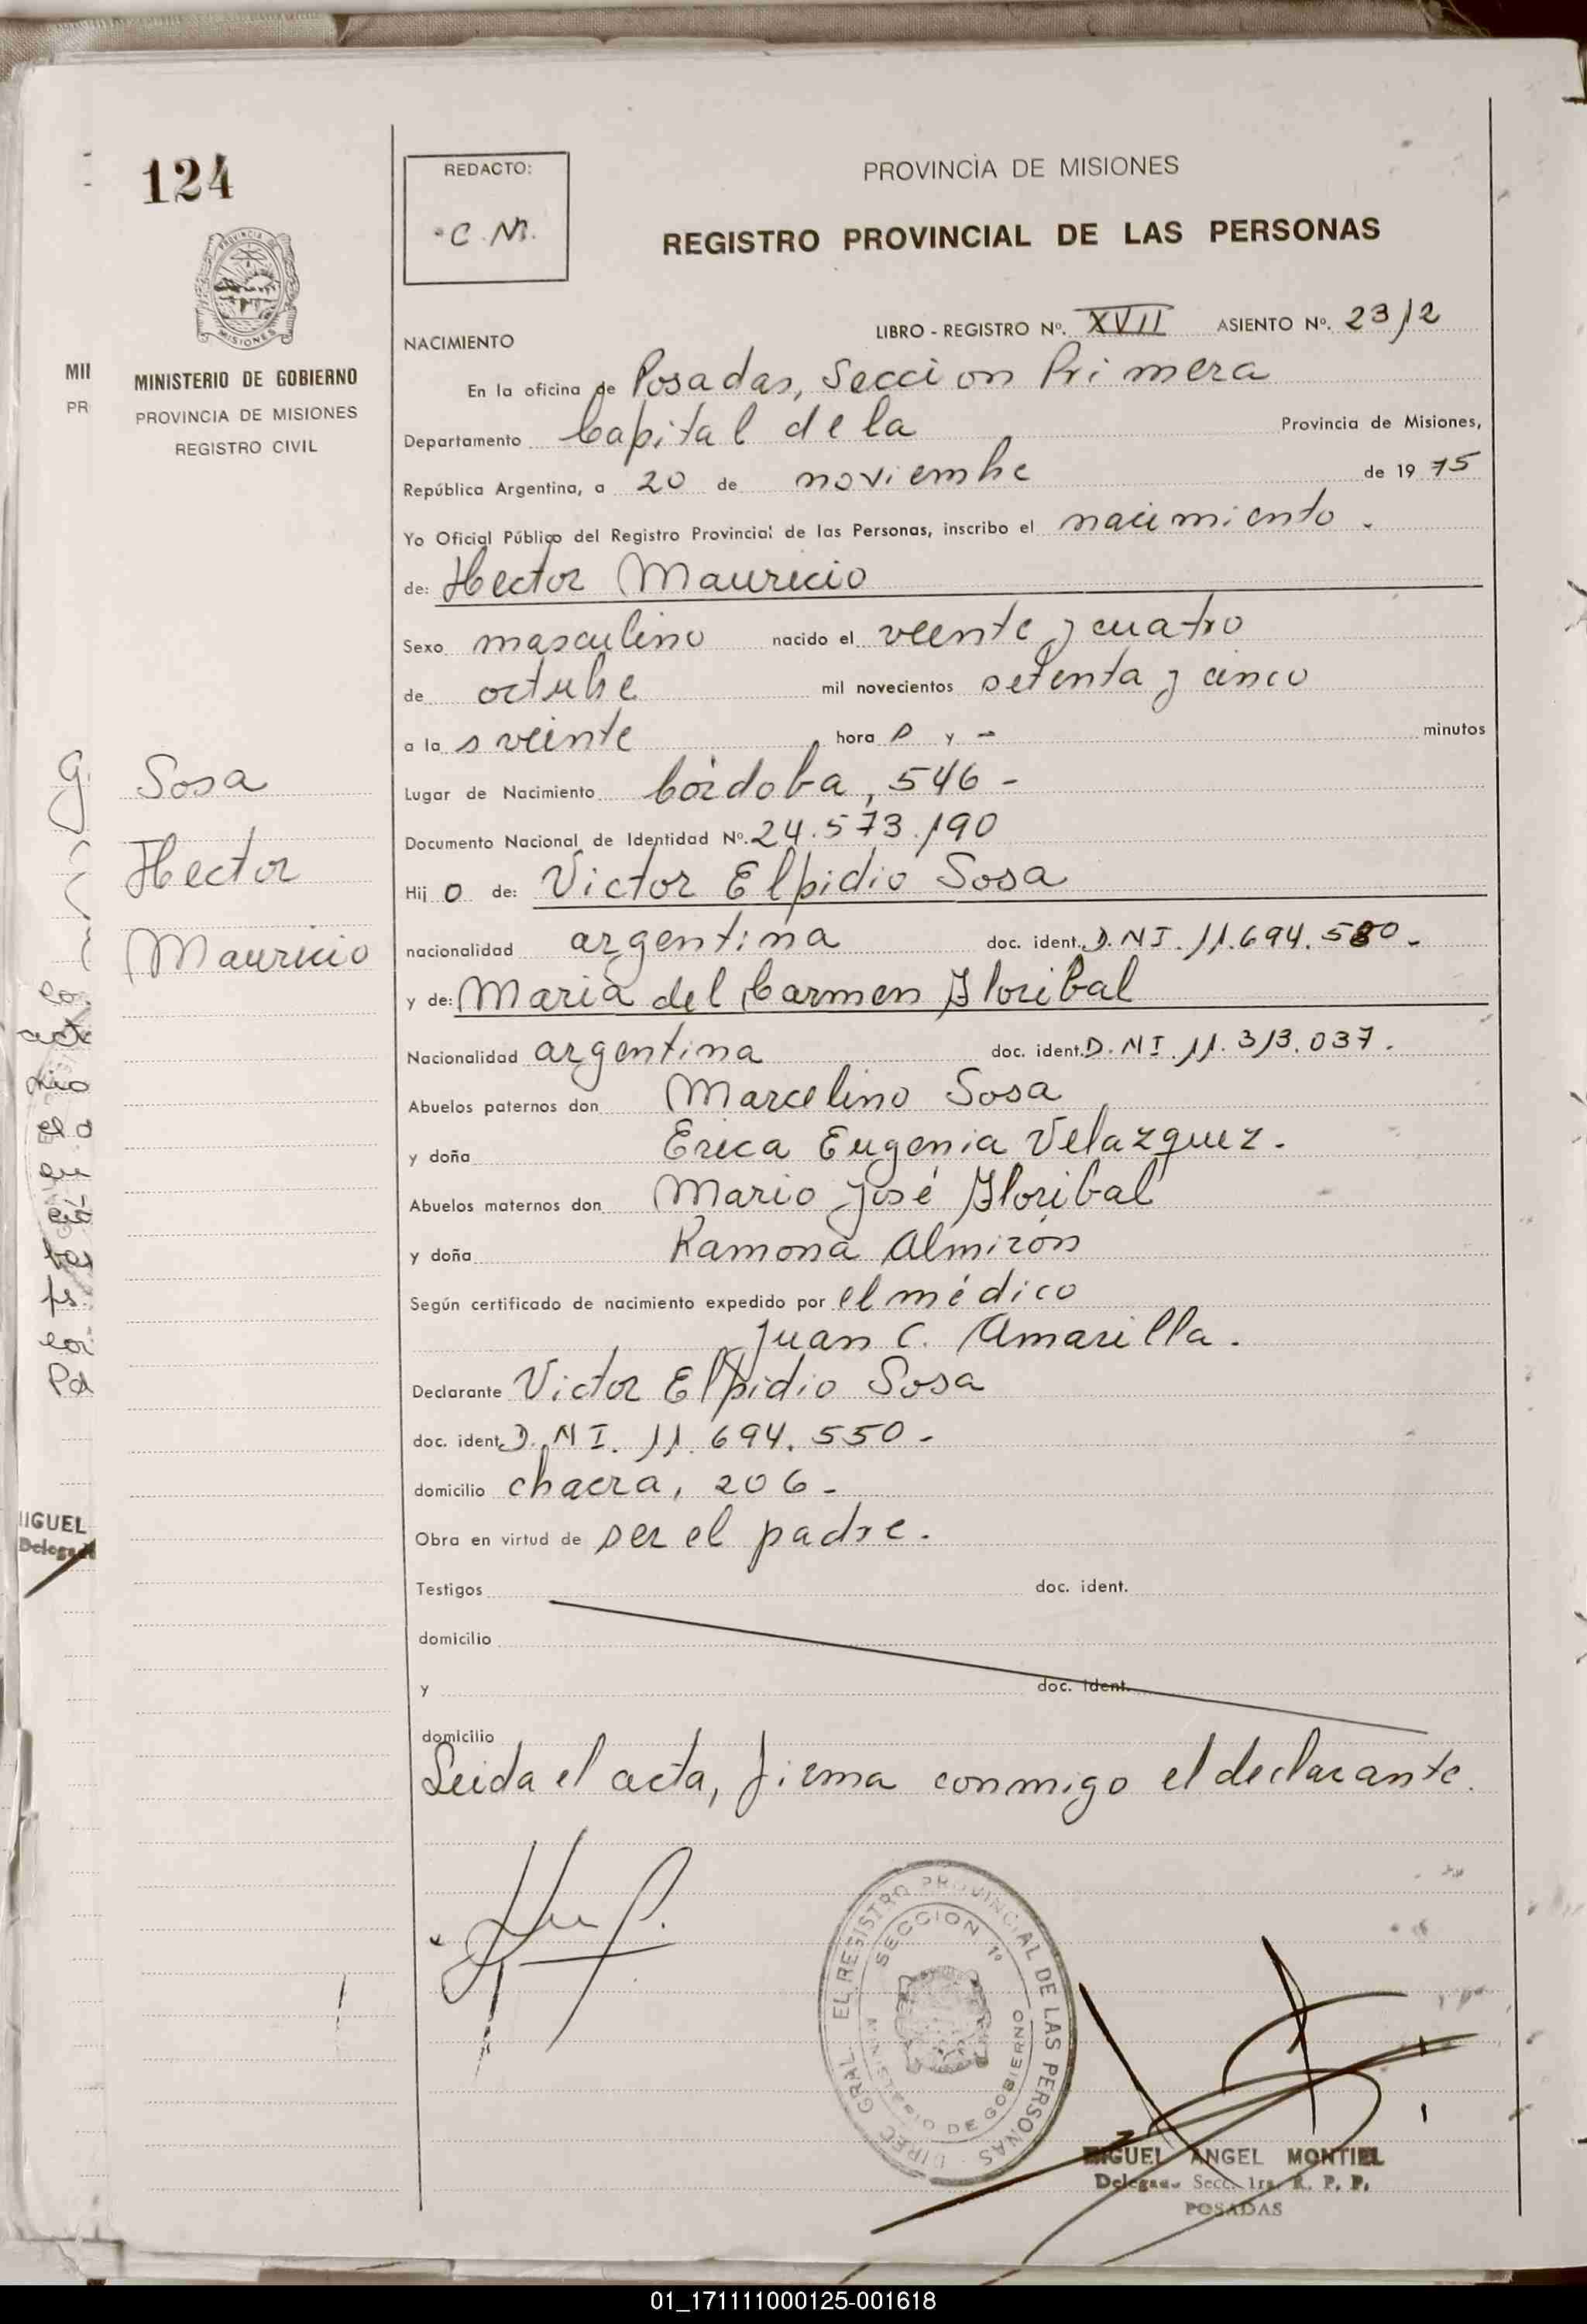 124
REDACTO:
C. M.
PROVINCIA DE MISIONES
REGISTRO PROVINCIAL DE LAS PERSONAS
MINISTERIO DE GOBIERNO
PROVINCIA DE MISIONES
REGISTRO CIVIL
Sosa
Hector
Mauricio
NACIMIENTO
LIBRO - REGISTRO Nº. XVII ASIENTO Nº. 2312
En la oficina de Posadas, Seccion Primera
Departamento Capital de la Provincia de Misiones,
República Argentina, a 20 de noviembre de 1975
Yo Oficial Público del Registro Provincial de las Personas, inscribo el nacimiento.
de: Hector Mauricio
Sexo masculino nacido el veente y cuatro
de octubre mil novecientos setenta y cinco
a la s veinte hora s y - minutos
Lugar de Nacimiento Córdoba, 546-
Documento Nacional de Identidad Nº. 24.573.190
Hij o de: Victor Elpidio Sosa
nacionalidad argentina doc. ident. D.N I. 11.694.550-
y de: Maria del Carmen Floribal
Nacionalidad argentina doc. ident. D.N I. 11.313.037.
Abuelos paternos don Marcelino Sosa
y doña Erica Eugenia Velazquez.
Abuelos maternos don Mario José Floribal
y doña Ramona Almirón
Según certificado de nacimiento expedido por el médico
Juan C. Amarilla.
Declarante Victor Elpidio Sosa
doc. ident. D.N I. 11.694.550-
domicilio chacra, 206-
Obra en virtud de ser el padre.
Testigos doc. ident.
domicilio
y doc. ident.
domicilio
Leida el acta, firma conmigo el declarante.
DIREC. GRAL. EL REGISTRO PROVINCIAL DE LAS PERSONAS
SECCION 1º
MINISTERIO DE GOBIERNO
MIGUEL ANGEL MONTIEL
Delegado Secc. 1ra. R. P. P.
POSADAS
01_171111000125-001618